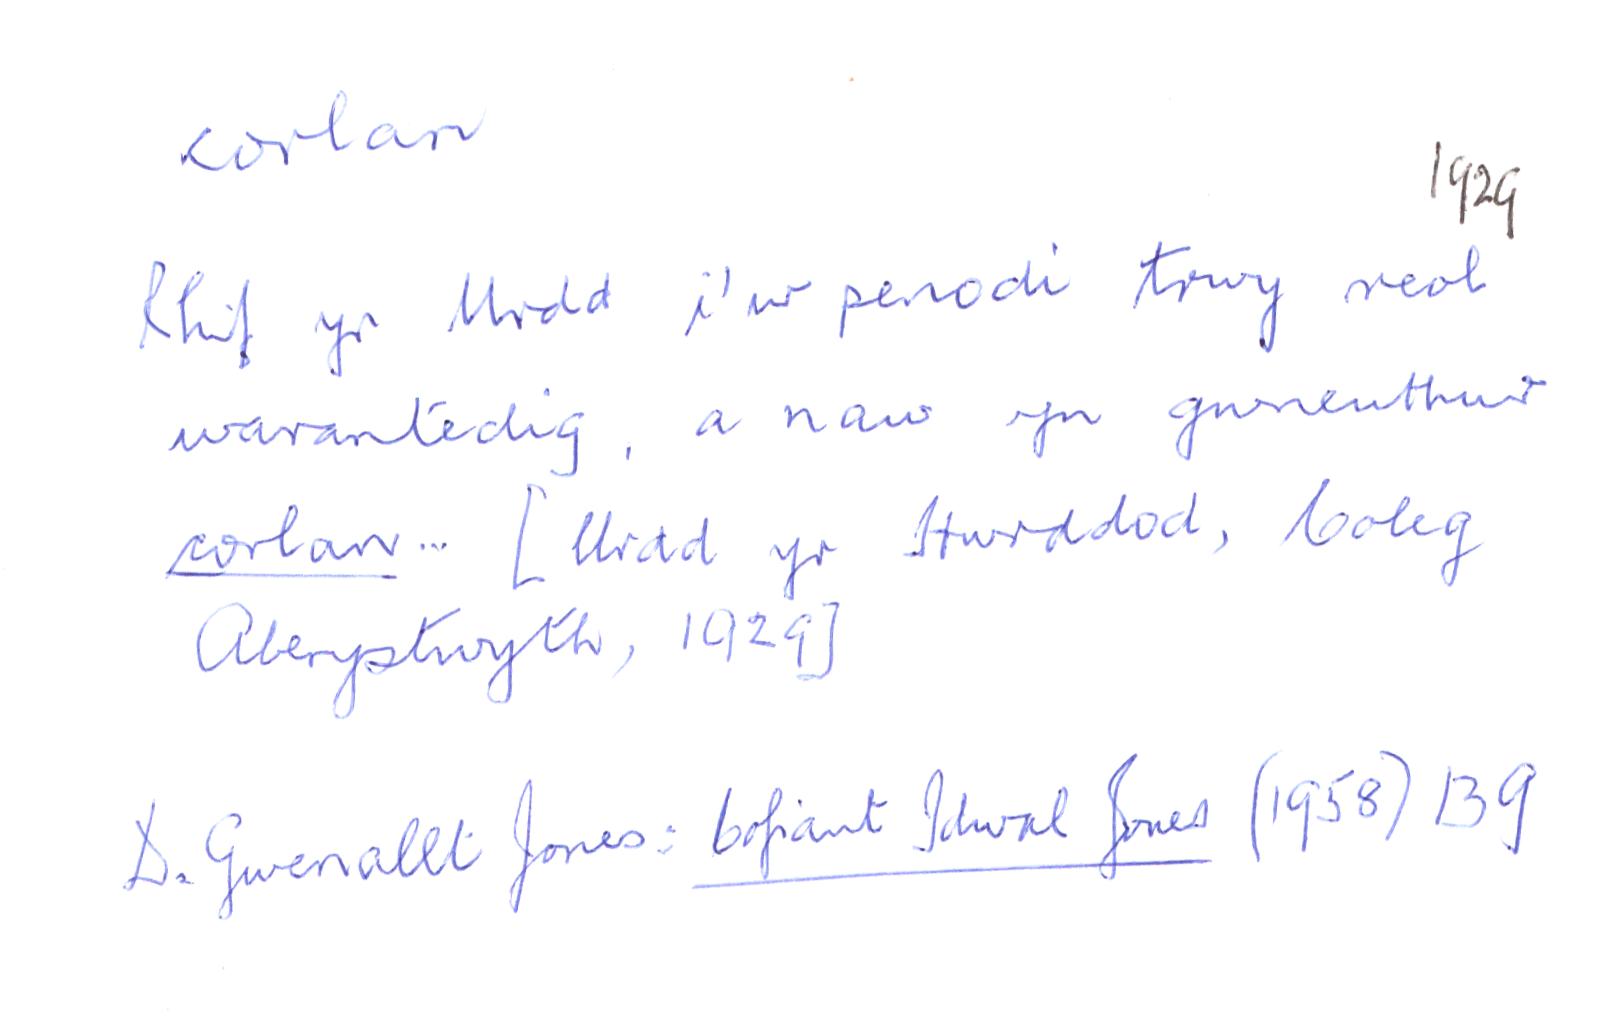 corlan
1929
Rhif yr Urdd i'w penodi trwy reol
warantedig, a naw yn gwneuthur
corlan... [Urdd yr Hwrddod, Coleg
Aberystwyth, 1929]
D. Gwenallt Jones: Cofiant Idwal Jones (1958) 139